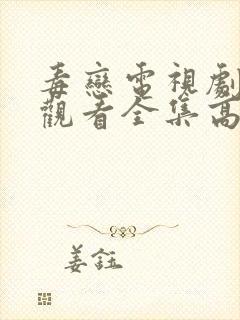 毒戀電視劇
觀看全集高
姜鈺